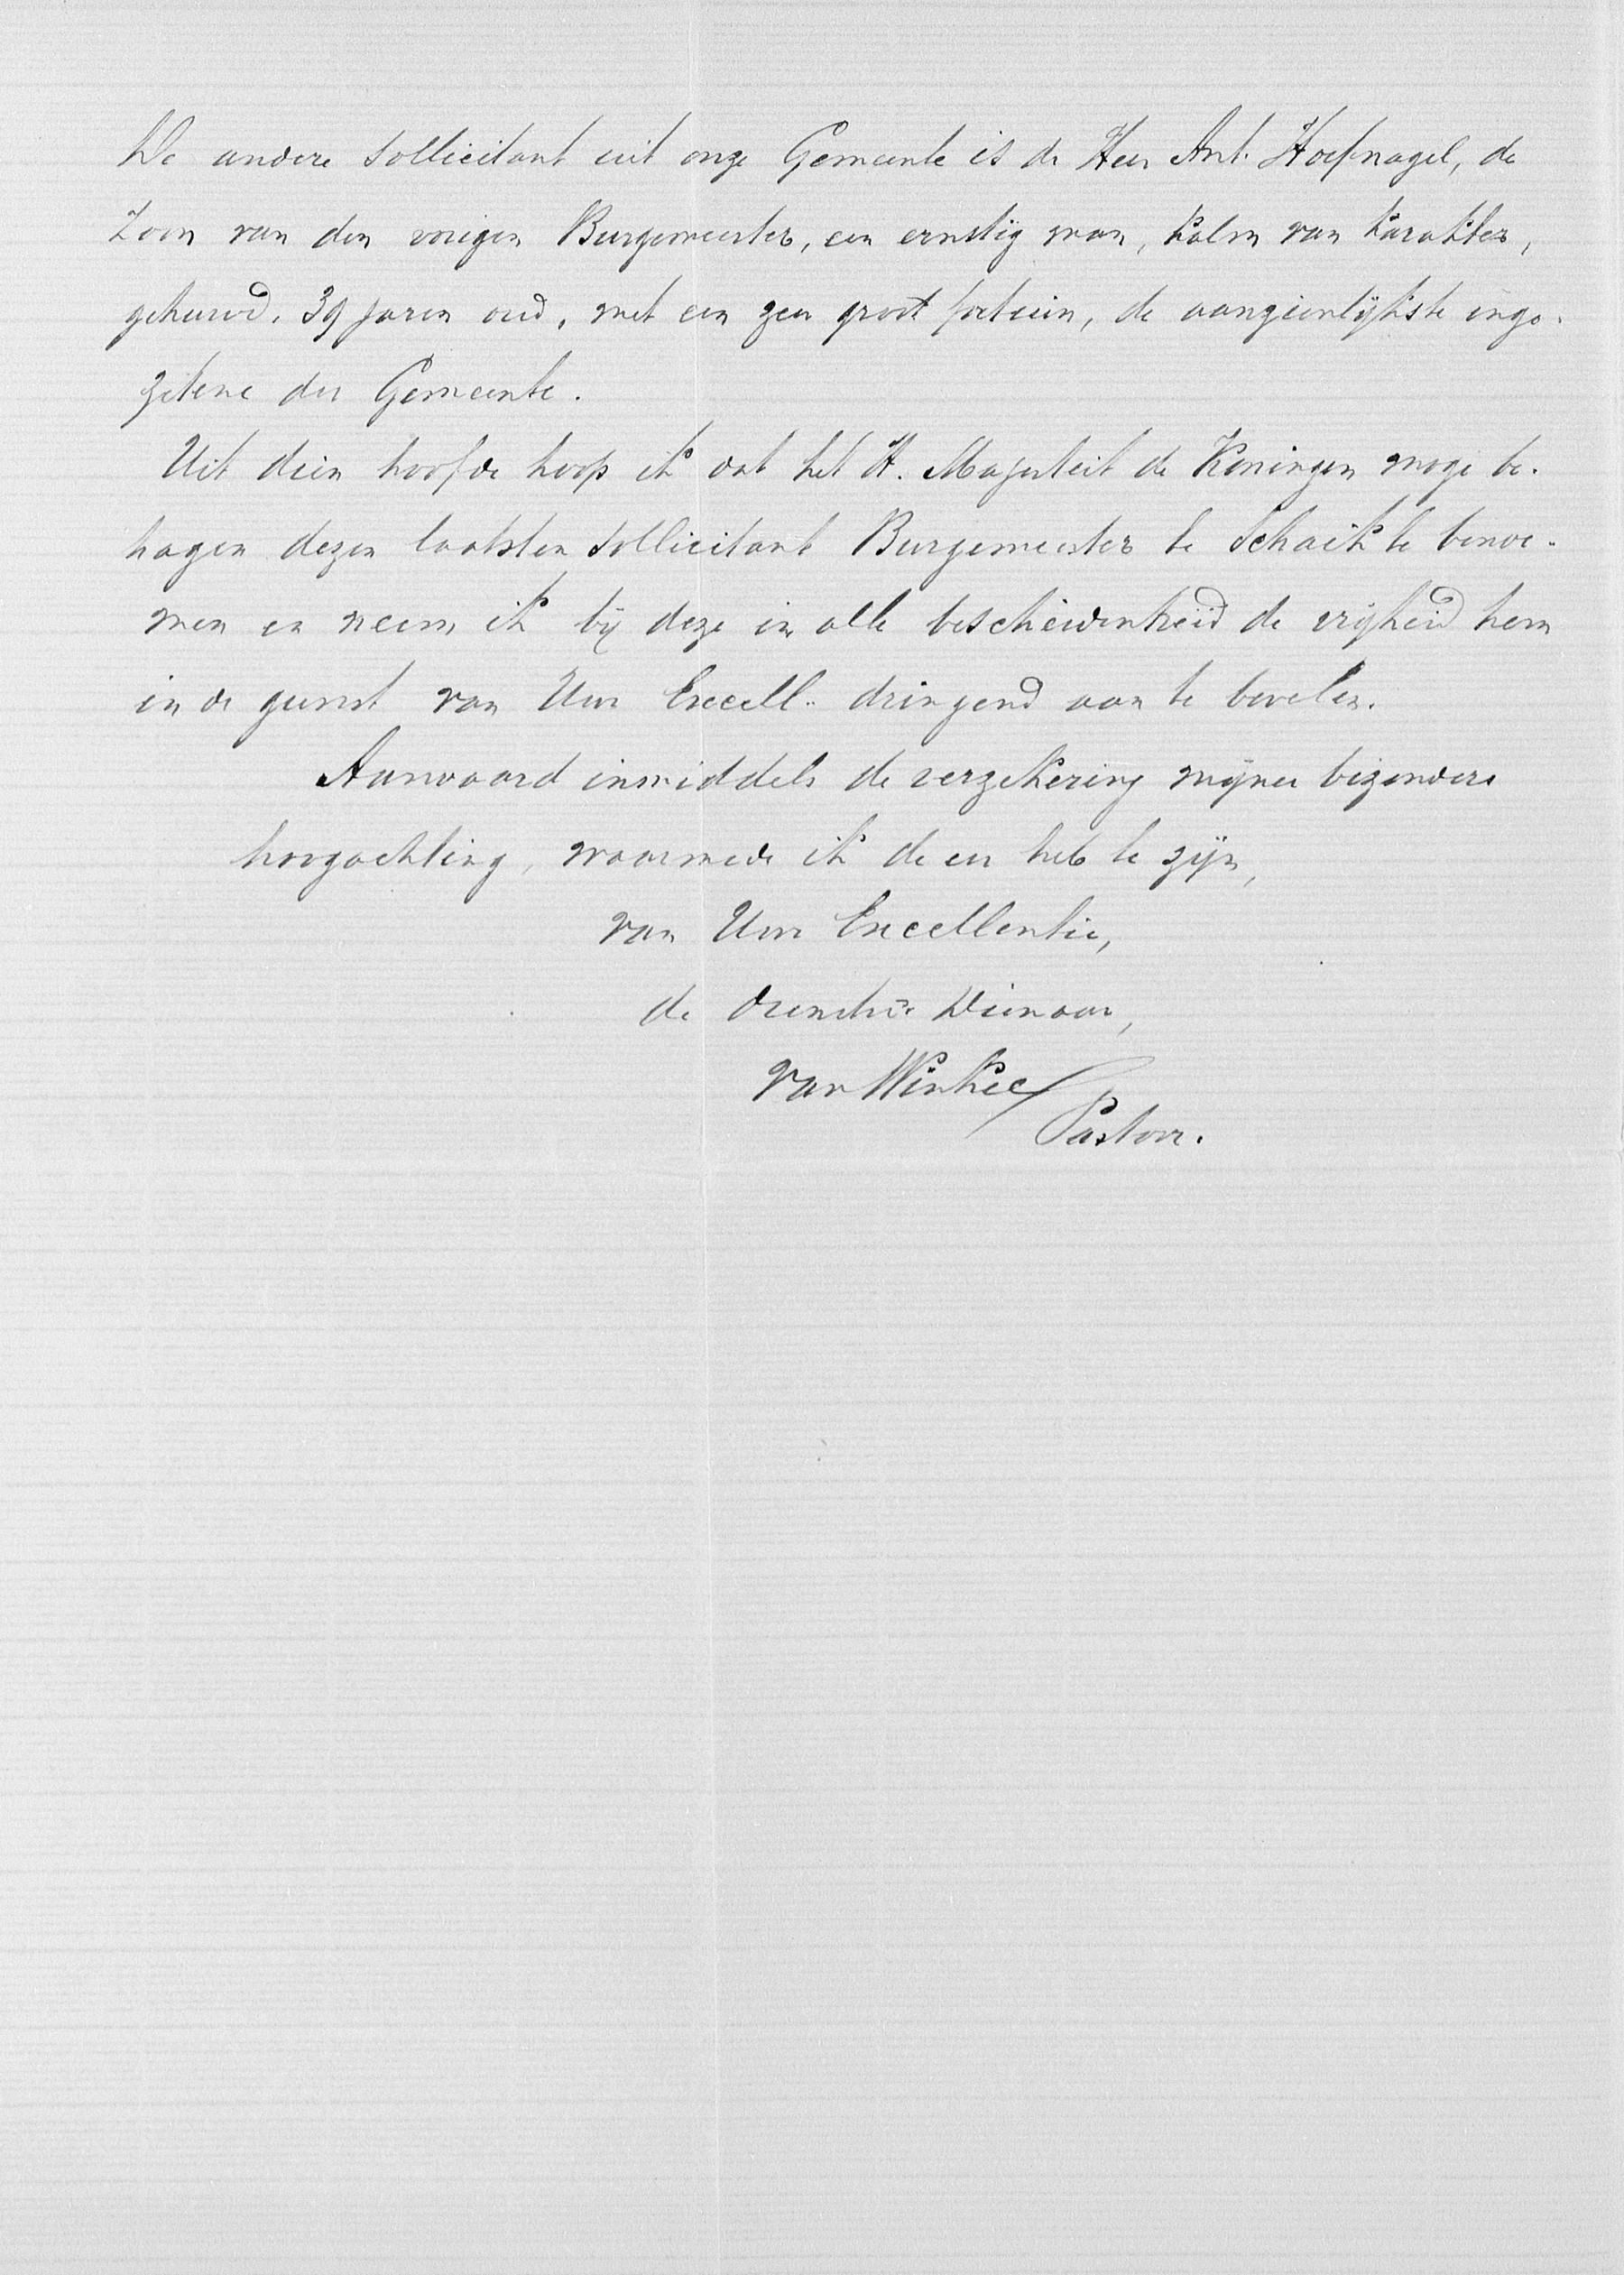 De andere sollicitant uit onze Gemeente is de Heer Ant. Hoefnagel, de
Zoon van den vorigen Burgemeester, een ernstig man, kalm van karakter,
gehuwd, 39 jaren oud, met een zeer groot fortuin, de aanzienlijkste inge-
zetene der Gemeente.
Uit dien hoofde hoop ik dat het H. Majesteit de Koningin moge be-
hagen dezen laatsten sollicitant Burgemeester te Schaik te benoe-
men en neem ik bij deze in alle bescheidenheid de vrijheid hem
in de gunst van Uwe Excell. dringend aan te bevelen.
Aanvaard inmiddels de verzekering mijner bizondere
hoogachting, waarmede ik de eer heb te zijn,
van Uwe Excellentie,
de Dienaar,
van Winkel
Pastoor.